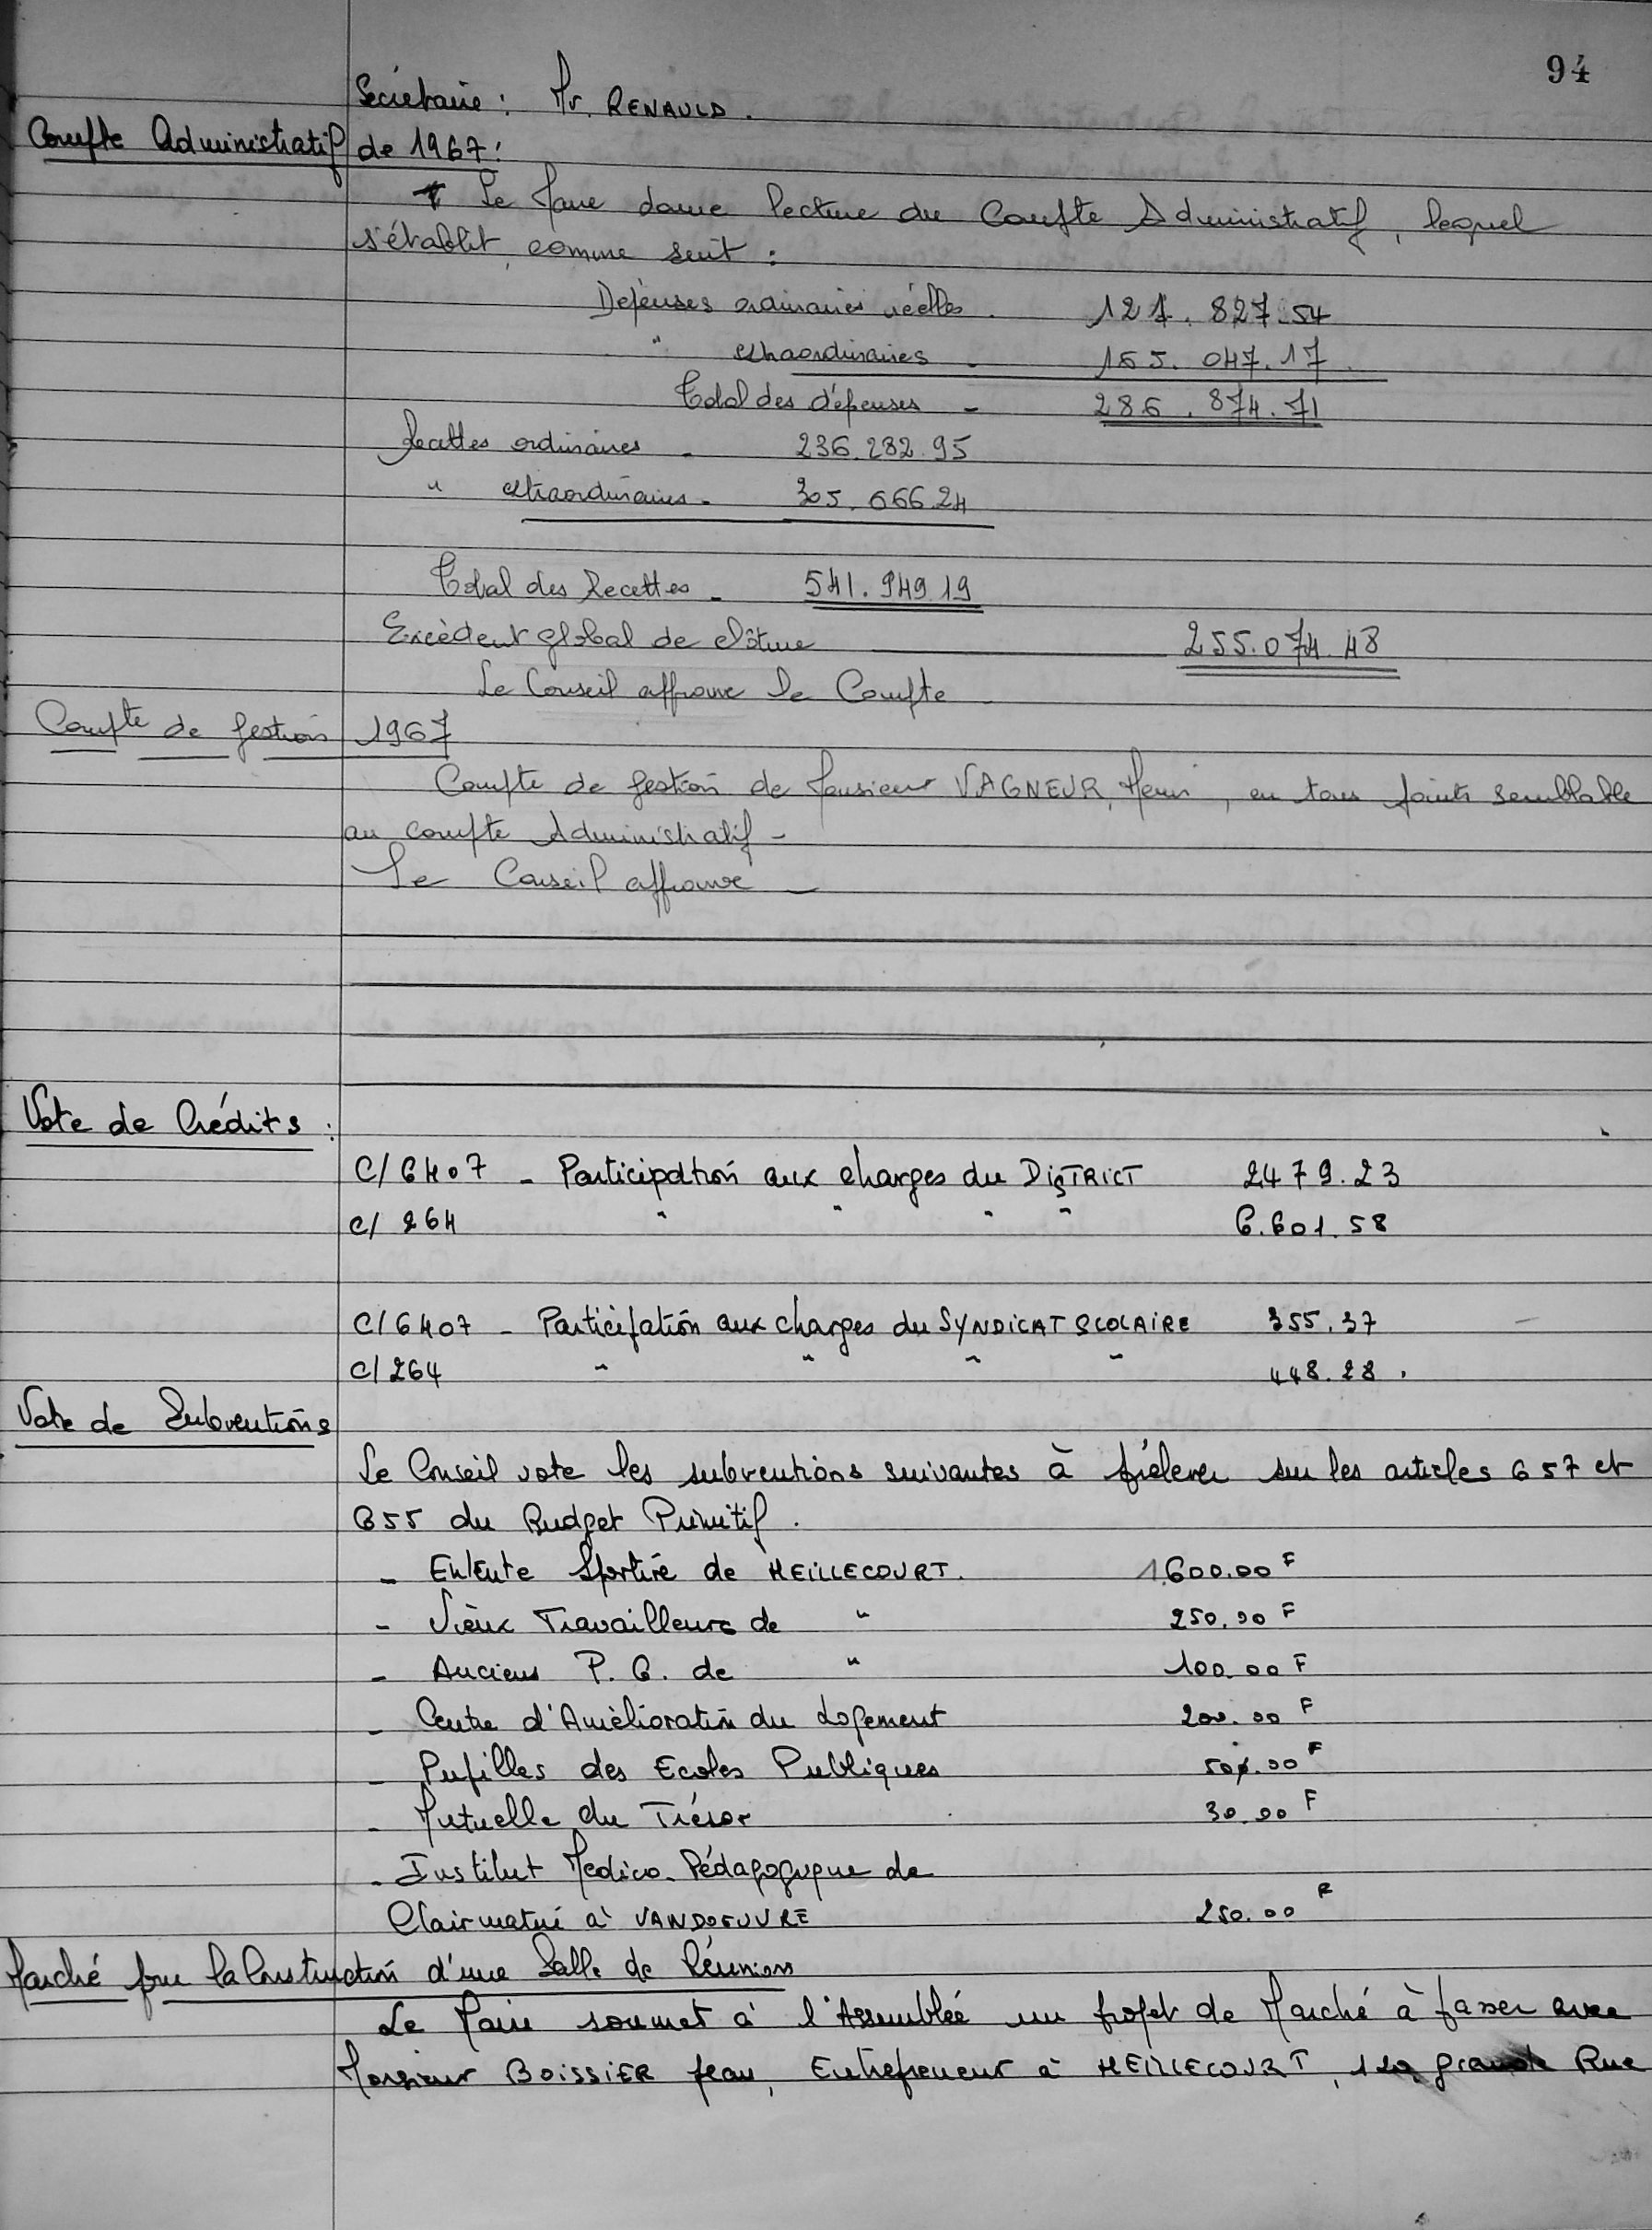 94
Secrétaire : Mr. RENAULD.
Compte Administratif de 1967 :
Le Maire donne lecture du Compte Administratif, lequel
s'établit, comme suit :
Dépenses ordinaires réelles. 121.827.54
" extraordinaires - 165.047.17
Total des dépenses - 286.874.71
Recettes ordinaires - 236.282.95
" extraordinaires - 305.666.24
Total des Recettes - 541.949.19
Excédent global de clôture 255.074.48
Le Conseil approuve le Compte
Compte de gestion 1967
Compte de gestion de Monsieur VAGNEUR, Henri, en tous points semblable
au compte Administratif -
Le Conseil approuve -
Vote de Crédits :
C/6407 - Participation aux charges du DISTRICT 2479.23
C/264 " " " " 6.601.58
C/6407 - Participation aux charges du SYNDICAT SCOLAIRE 355.37
C/264 " " " " 448.28.
Vote de Subventions
Le Conseil vote les subventions suivantes à prélever sur les articles 657 et
655 du Budget Primitif.
- Entente Sportive de HEILLECOURT. 1.600.00 F
- Vieux Travailleurs de " 250.00 F
- Anciens P.G. de " 100.00 F
- Centre d'Amélioration du Logement 200.00 F
- Pupilles des Ecoles Publiques .00 F
- Mutuelle du Trésor 30.00 F
- Institut Médico-Pédagogique de
Clairmatin à VANDOEUVRE 250.00 F
Marché pour la Construction d'une Salle de Réunions
Le Maire soumet à l'Assemblée un projet de Marché à passer avec
Monsieur BOISSIER Jean, Entrepreneur à HEILLECOURT, grande Rue